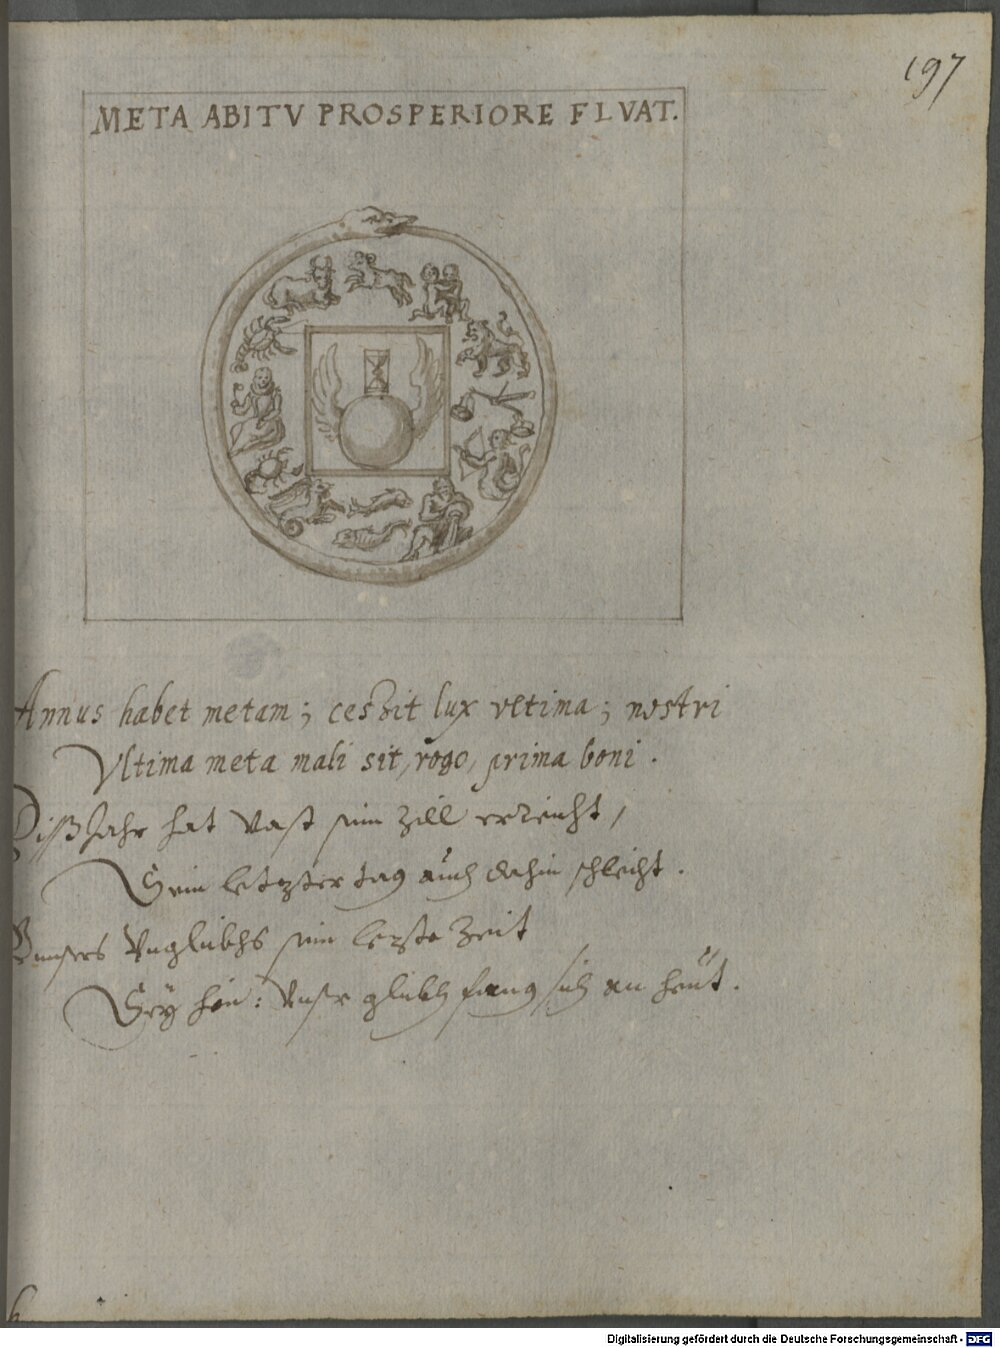 197
META ABITV PROSPERIORE FLVAT.
Annus habet metam; cessit lux vltima; nostri
Vltima meta mali sit, rogo, prima boni.
Diß Jahr hat vast sein Zill erreicht,
Sein letzster tag auch dahin schleicht.
Vnsers Vnglükhs sein letzste Zeit
Sey hin: Vnser glükh fang sich an heut.
Digitalisierung gefördert durch die Deutsche Forschungsgemeinschaft - DFG